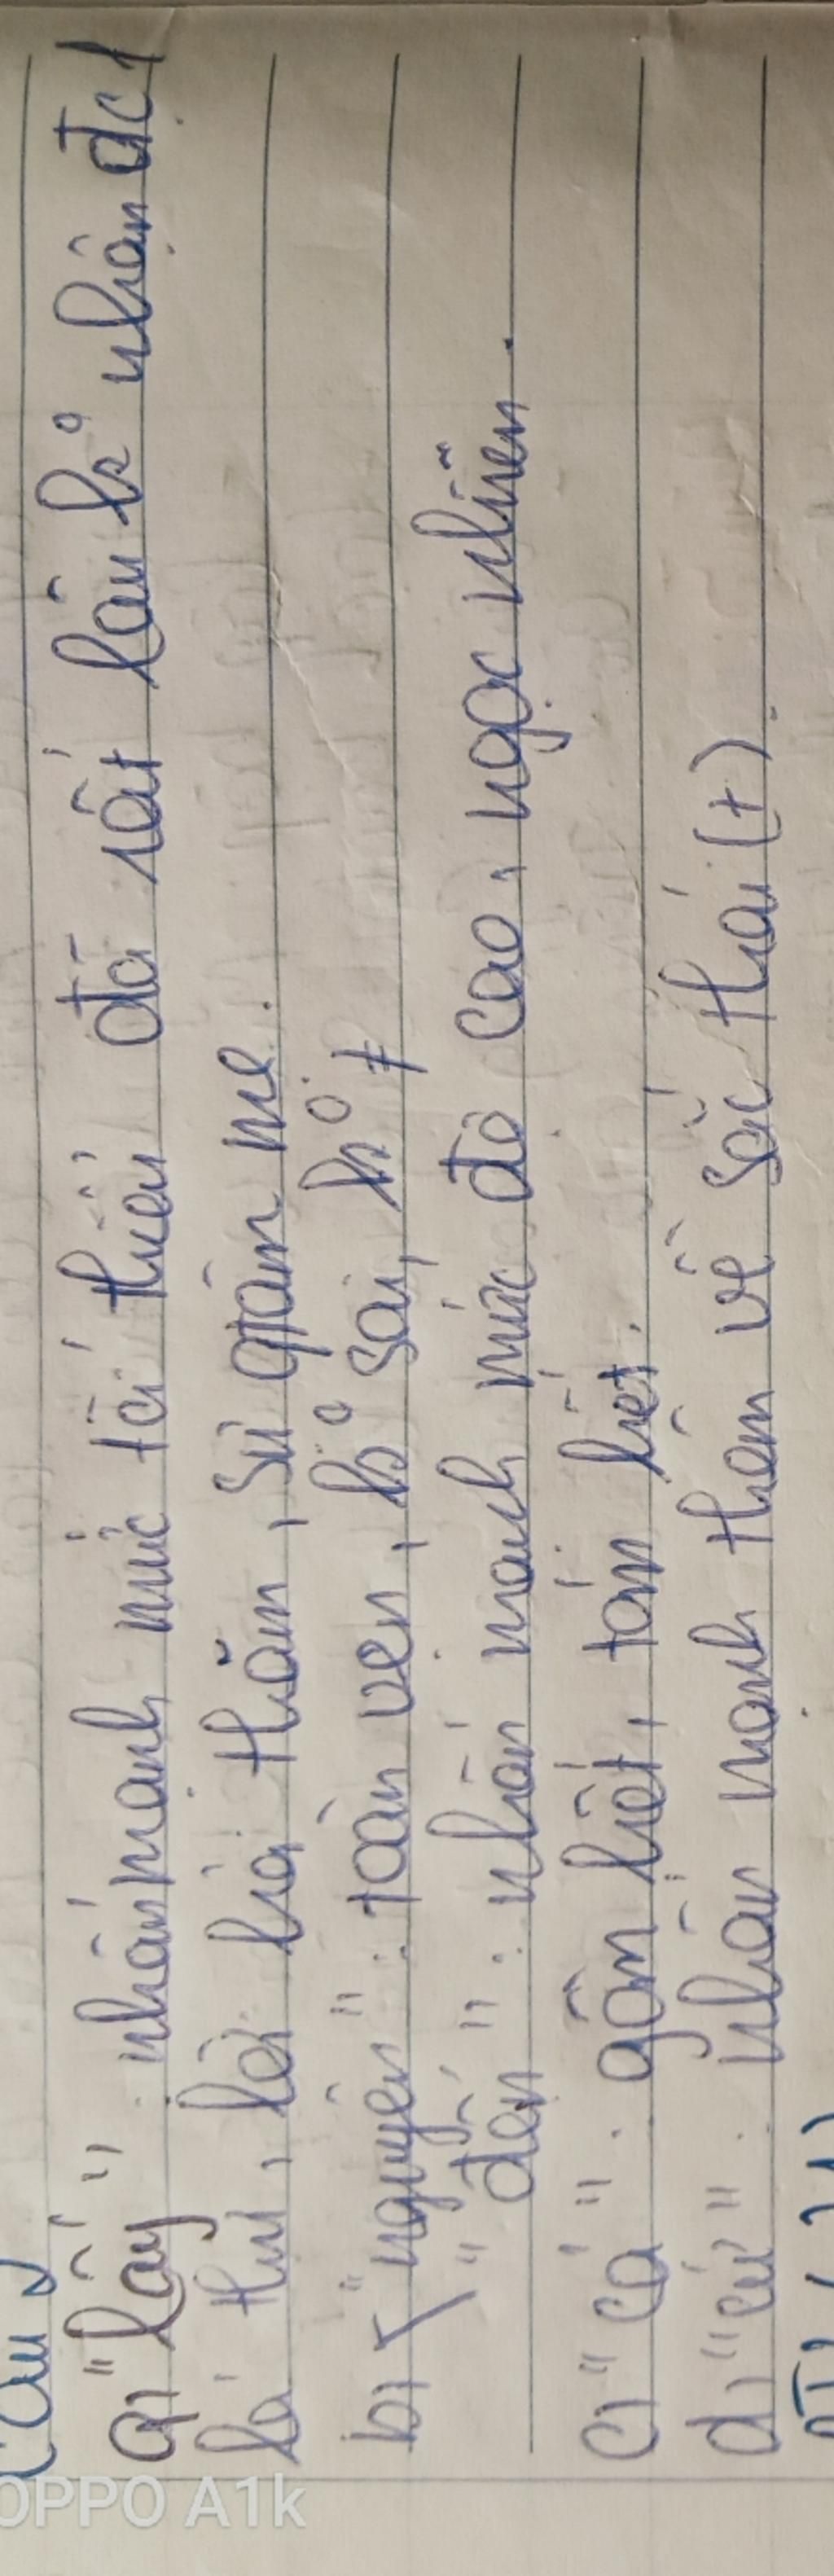 Câu 2
a, "lấy": nhấn mạnh mức tối thiểu đã rất lâu ko nhận đc 1
lá thư, lời hỏi thăm, sự qtâm mẹ.
b, "nguyên": toàn vẹn, ko sai, ko ≠
"đến": nhấn mạnh mức độ cao, ngạc nhiên.
c, "cả": gồm hết, tóm hết.
d, "cứ": nhấn mạnh thêm về sắc thái (+).
OPPO A1k